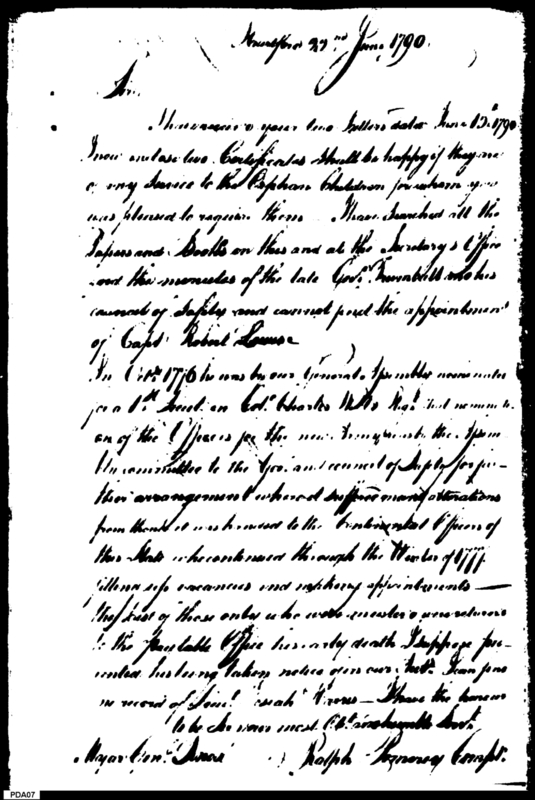 22nd June 1790
Sir
I have received your two Letters dated June 13th 1790
I now enclose two Certificates shall be happy if they are
of any Service to the Orphan Children for whom you
was pleased to require them I have Searched all the
Papers and Books in this and at the Secretary's Office
and the minutes of the late Govr Trumbull & his
council of Safety and cannot find the appointment
of Capt Robert
In Octr 1776 he was by our General Assembly nominated
for a 1st Lieut in Col. Charles Webbs Regt that nominati
on of the Officers for the new the Assem
bly committed to the Gov. and council of Safety for fur
ther arrangement where it suffered many alterations
from thence it was to the Continental Officers of
this State who continued through the Winter of 1777
filling up vacancies and making appointments
the List of those only who were were returned
to the Office his early death I suppose pre
vented his being taken notice of in our I can find
no record of Lieut I have the honour
to be Sir your most Obt humble Servt
Major Genl Ralph Pomeroy Compt.
PDA07